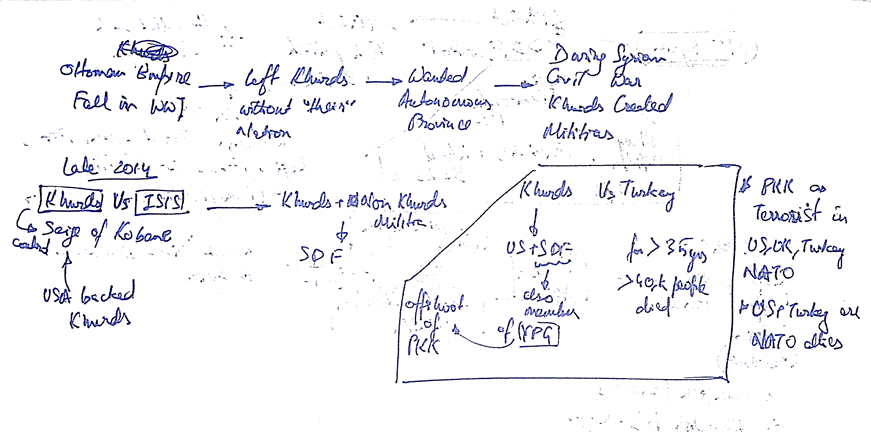 Ottoman Empire
Fall in WWI
Left Khurds
without "their"
Nation
Wanted
Autonomous
Province
During Syrian
Civil War
Khurds Created
Militias
Late 2014
Khurds Vs ISIS
Seige of Kobane
USA backed
Khurds
Khurds + Non Khurds
Militia
SDF
Khurds Vs Turkey
US + SDF
also
member
of YPG
offshoot
of
PKK
for > 35 yrs
> 40k people
died
PKK as
Terrorist in
US, UK, Turkey
NATO
US & Turkey are
NATO allies